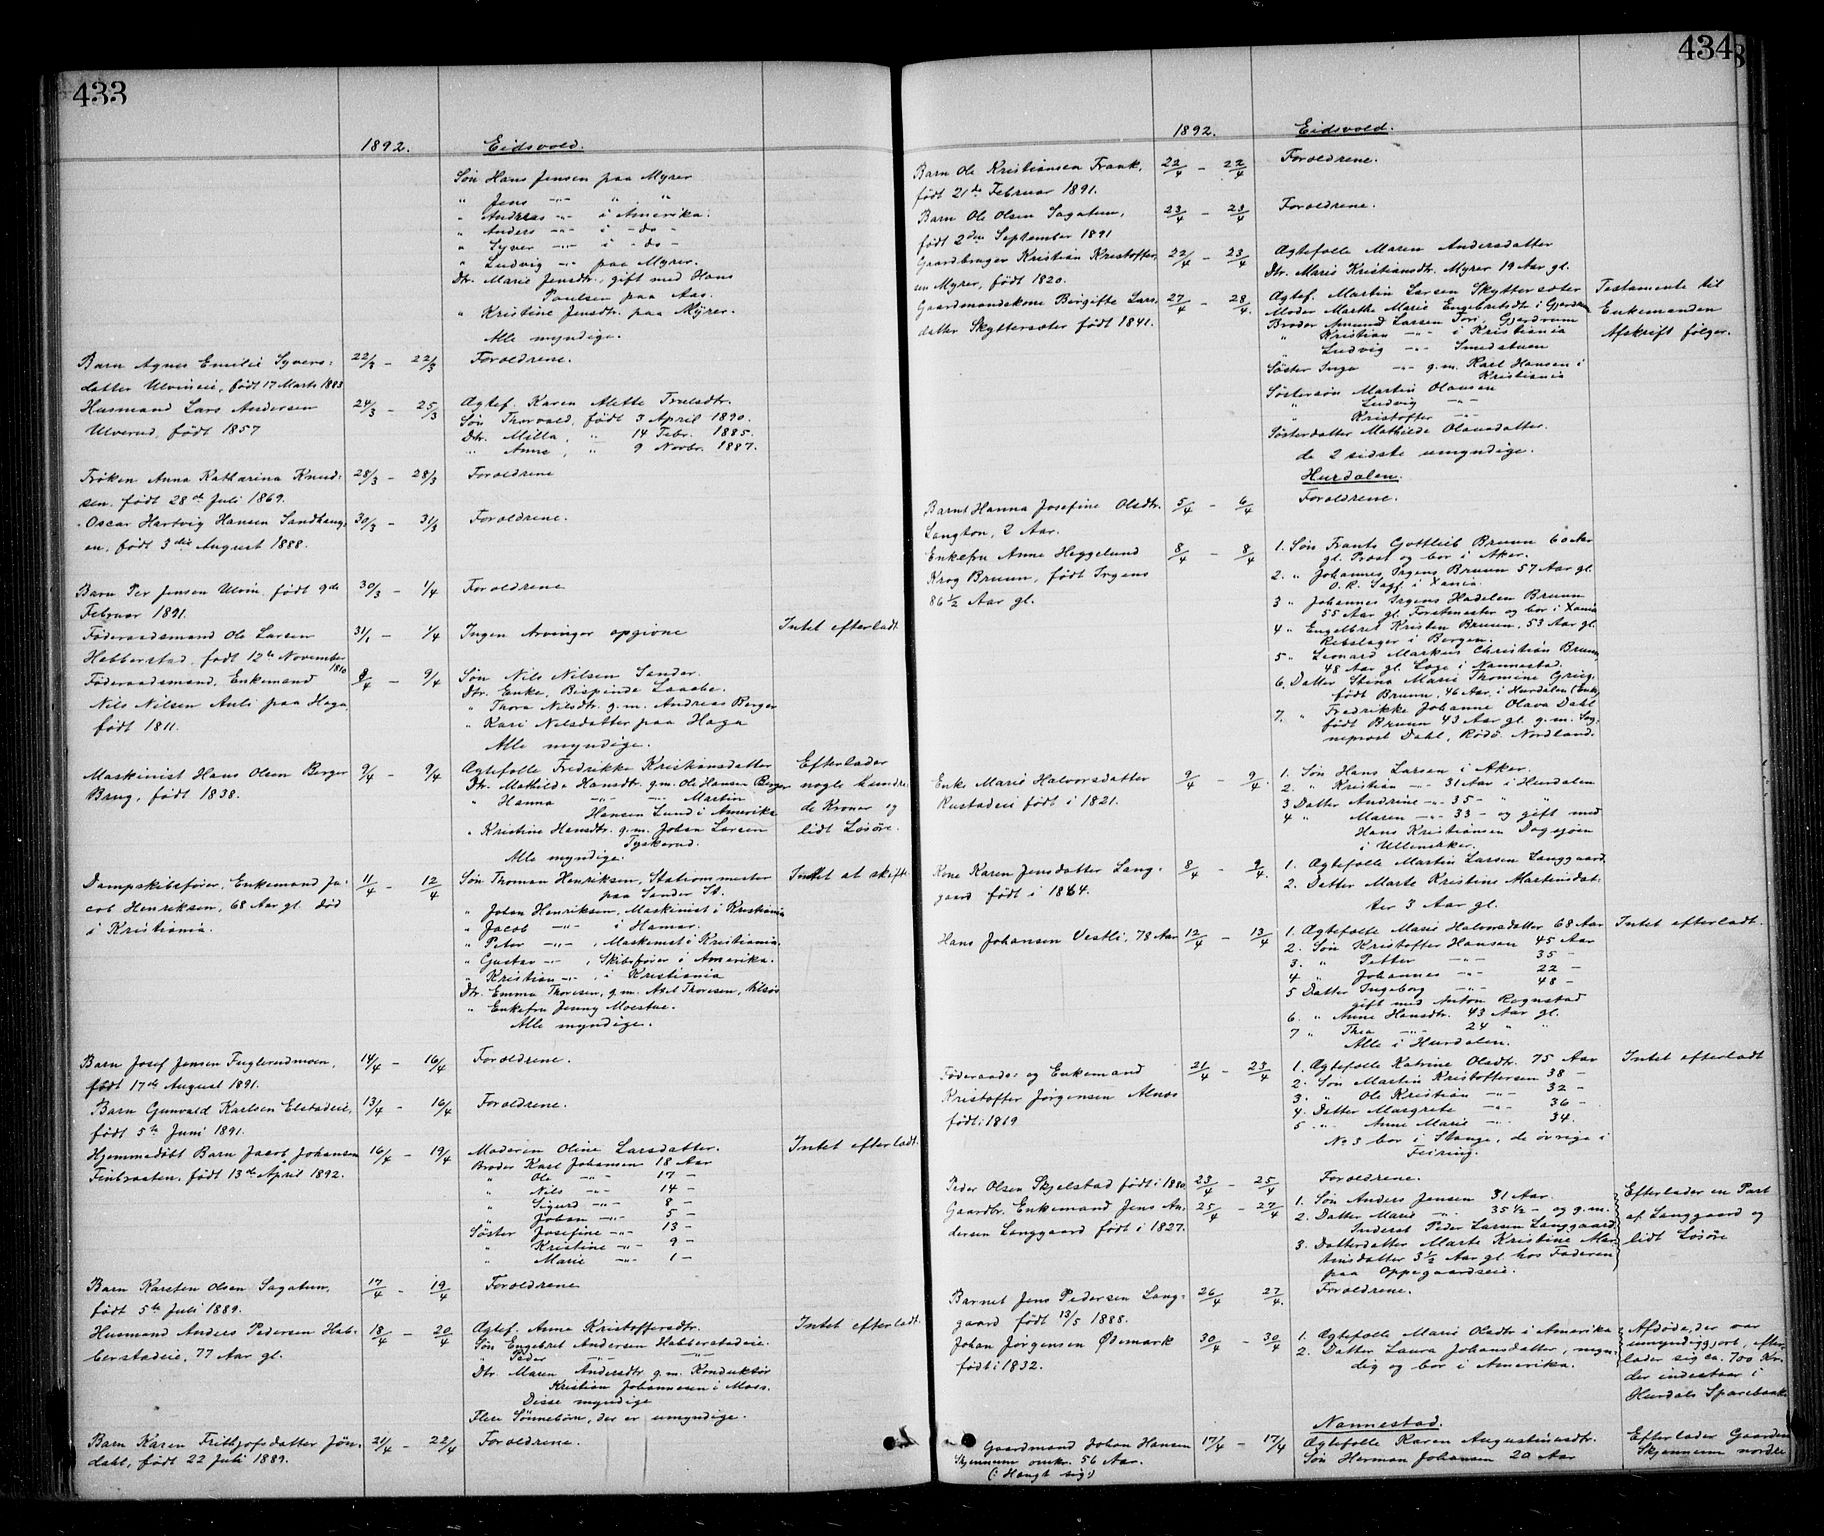 433
1892. Eidsvold.
Søn Hans Jensen paa Myrer
" Jens -"- " "
" Andreas -"- i Amerika.
" Anders -"- i - do -
" Syver -"- i - do -
" Ludvig -"- paa Myrer.
Dtr. Marie Jensdtr. gift med Hans
Poulsen paa Aas.
" Kristine Jensdtr. paa Myrer.
Alle myndige.
Barn Agnes Emilie Syvers- 22/3 - 22/3 Forældrene.
datter Ulvineie, født 17 Marts 1883
Husmand Lars Andersen 24/3 - 25/3 Ægtef. Karen Alette Truelsdtr.
Ulverud, født 1857 Søn Thorvald, født 3 April 1890.
Dtr. Milla, " 14 Febr. 1885.
" Anna, " 9 Novbr. 1887.
Frøken Anna Katharina Knud- 28/3 - 28/3 Forældrene
sen, født 28de Juli 1869.
Oscar Hartvig Hansen Sandhaug- 30/3 - 31/3 Forældrene.
en, født 3die August 1888.
Barn Per Jensen Ulvin, født 9de 30/3 - 1/4 Forældrene
Februar 1891.
Føderaadsmand Ole Larsen 31/1 - 1/4 Ingen Arvinger opgivne Intet efterladt.
Habberstad, født 12te November 1810
Føderaadsmand, Enkemand 8/4 - 9/4 Søn Nils Nilsen Sander.
Nils Nilsen Auli paa Haga, Dtr. Enke, Bispinde Laache.
født 1811. " Thora Nilsdtr. g.m. Andreas Berger
" Kari Nilsdatter paa Haga
Alle myndige.
Maskinist Hans Olsen Berger 9/4 - 9/4 Ægtefælle Fredrikke Kristiansdatter Efterlader
Brug, født 1838. Dtr. Mathilde Hansdtr. g.m. Ole Hansen Berger nogle hundre-
" Hanna -"- -"- Martin de Kroner og
Hansen Lund i Amerika lidt Løsøre.
" Kristine Hansdtr. g.m. Johan Larsen
Tyskerud.
Alle myndige.
Dampskibsfører, Enkemand Ja- 11/4 - 12/4 Søn Thomas Henriksen, Stationsmester Intet at skifte.
cob Henriksen, 68 Aar gl. død paa Sander St.
i Kristiania. " Johan Henriksen, Maskinist i Kristiania
" Jacob -"- i Hamar.
" Peter -"- , Maskinist i Kristiania.
" Gustav -"- , Skibsfører i Amerika.
" Kristian -"- , i Kristiania
Dtr. Emma Thoresen, g.m. Axel Thoresen,
" Enkefru Jenny Moestue.
Alle myndige.
Barn Josef Jensen Fuglerudmoen, 14/4 - 16/4 Forældrene.
født 17de August 1891.
Barn Gunvald Karlsen Elstadeie, 13/4 - 16/4 Forældrene.
født 5te Juni 1891.
Hjemmedøbt Barn Jacob Johansen 16/4 - 19/4 Moderen Oline Larsdatter. Intet efterladt.
Finbraaten, født 13de April 1892. Broder Karl Johansen 18 Aar
" Ole -"- 17 -
" Nils -"- 14 -
" Sigurd -"- 8 -
" Johan -"- 5 -
Søster Josefine -"- 13 -
" Kristine -"- 9 -
" Marie -"- 1 -
Barn Karsten Olsen Sagatun, 17/4 - 19/4 Forældrene
født 5te Juli 1889.
Husmand Anders Pedersen Hab- 18/4 - 20/4 Ægtef. Anne Kristoffersdtr. Intet efterladt.
berstadeie, 77 Aar gl. Søn Engebret Andersen Habberstadeie.
" Peder -"- -"-
Dtr. Maren Andersdtr g.m. Konduktør
Kristian Johannesen i Moss.
Disse myndige
Flere Sønnebørn, der er umyndige.
Barn Karen Frithjofsdatter Jøn- 21/4 - 22/4 Forældrene.
dahl, født 22 Juli 1889.
434
1892. Eidsvold.
Barn Ole Kristiansen Frank, 22/4 - 22/4 Forældrene.
født 21de Februar 1891.
Barn Ole Olsen Sagatun, 23/4 - 23/4 Forældrene.
født 2den September 1891
Gaardbruger Kristian Kristoffer- 22/4 - 23/4 Ægtefælle Maren Andersdatter
sen Myrer, født 1820. Dtr. Marie Kristiansdtr. Myrer 19 Aar gl.
Gaardmandskone Birgitte Lars- 27/4 - 28/4 Ægtef. Martin Larsen Skyttersæter Testamente til
datter Skyttersæter født 1841. Moder Marthe Marie Engebretsdt i Gjerdrum Enkemanden
Broder Amund Larsen Tori, Gjerdrum Afskrift følger.
" Kristian -"- i Kristiania
" Ludvig -"- Smedstuen
Søster Inga -"- g.m. Karl Hansen i
Kristiania
Søstersøn Martin Olausen
" Ludvig -"-
" Kristoffer -"-
Søsterdatter Mathilde Olausdatter.
de 2 sidste umyndige.
Hurdalen.
Barnet Hanna Josefine Olsdtr. 5/4 - 6/4 Forældrene.
Langton, 2 Aar.
Enkefru Anne Heggelund 8/4 - 8/4 1. Søn Frants Gottlieb Bruun 60 Aar
Krog Bruun, født Irgens gl. Prost og bor i Aker.
86 1/2 Aar gl. 2. " Johannes Irgens Bruun 57 Aar gl.
O.R. Sagf. i Xania.
3 " Johannes Irgens Hadelen Bruun
55 Aar gl. Forstmester og bor i Xania
4 " Engelbret Kristen Bruun, 53 Aar gl.
Rebslager i Bergen.
5 " Leonard Markus Christian Bruun,
48 Aar gl. Læge i Nannestad.
6. Datter Stina Marie Thomine Grieg,
født Bruun, 46 Aar, i Hurdalen (Enke)
7. " Fredrikke Johanne Olava Dahl
født Bruun 43 Aar gl. g.m. Sog-
neprost Dahl, Rødø Nordland.
Enke Marie Halvorsdatter 9/4 - 9/4 1. Søn Hans Larsen i Aker.
Rustadeie født i 1821. 2. " Kristian -"- 31 Aar i Hurdalen
3 Datter Andrine -"- 35 - " "
4 " Maren -"- 33 - og gift med
Hans Kristiansen Dagsjøen
i Ullensaker.
Kone Karen Jensdatter Lang- 8/4 - 9/4 1. Ægtefælle Martin Larsen Langgaard.
gaard født i 1864. 2. Datter Marte Kristine Martinsdat-
ter 3 Aar gl.
Hans Johansen Vestli, 78 Aar 12/4 - 13/4 1. Ægtefælle Marie Halvorsdatter 68 Aar Intet efterladt.
2. Søn Kristoffer Hansen 45 Aar
3. " Petter -"- 35 -
4 " Johannes -"- 22 -
5 Datter Ingeborg -"- 48 -
gift med Anton Rognstad
6. " Anne Hansdtr. 43 Aar gl.
7 " Thea -"- 24 " "
Alle i Hurdalen.
Føderaads- og Enkemand 21/4 - 23/4 1. Ægtefælle Katrine Olsdtr. 75 Aar Intet efterladt
Kristoffer Jørgensen Alnæs 2. Søn Martin Kristoffersen 38 -
født i 1819 3. " Ole Kristian -"- 32 -
4. Datter Margrete -"- 36 -
5 " Anne Marie -"- 34.
No 3 bor i Stange, de øvrige i
Feiring.
Peder Olsen Skjelstad født i 1880 23/4 - 25/4 Forældrene.
Gaardbr. Enkemand Jens An- 25/4 - 27/4 1. Søn Anders Jensen 31 Aar. Efterlader en Part
dersen Langgaard født i 1827. 2. Datter Marie -"- 35 1/2 - og g.m. af Langgaard og
Inderst Peder Larsen Langgaard. lidt Løsøre
3. Datterdatter Marte Kristine Mar-
tinsdatter 3 1/2 Aar gl hos Faderen
paa Oppegaardseie.
Barnet Jens Pedersen Lang- 26/4 27/4. Forældrene.
gaard født 13/5 1888.
Johan Jørgensen Ødemark 30/4 - 30/4 1. Ægtefælle Marie Olsdtr i Amerika Afdøde, der var
født i 1832. 2. Datter Laura Johansdatter, myn- umyndiggjort, efter-
dig og bor i Amerika. lader sig ca. 700 Kr.
der indestaar i
Hurdals Sparebank.
Nannestad.
Gaardmand Johan Hansen 17/4 - 17/4 Ægtefælle Karen Augustinusdtr. Efterlader Gaarden
Skjennum omkr. 56 Aar. Søn Herman Johansen 20 Aar Skjennum nordre
(: Hængt sig:)